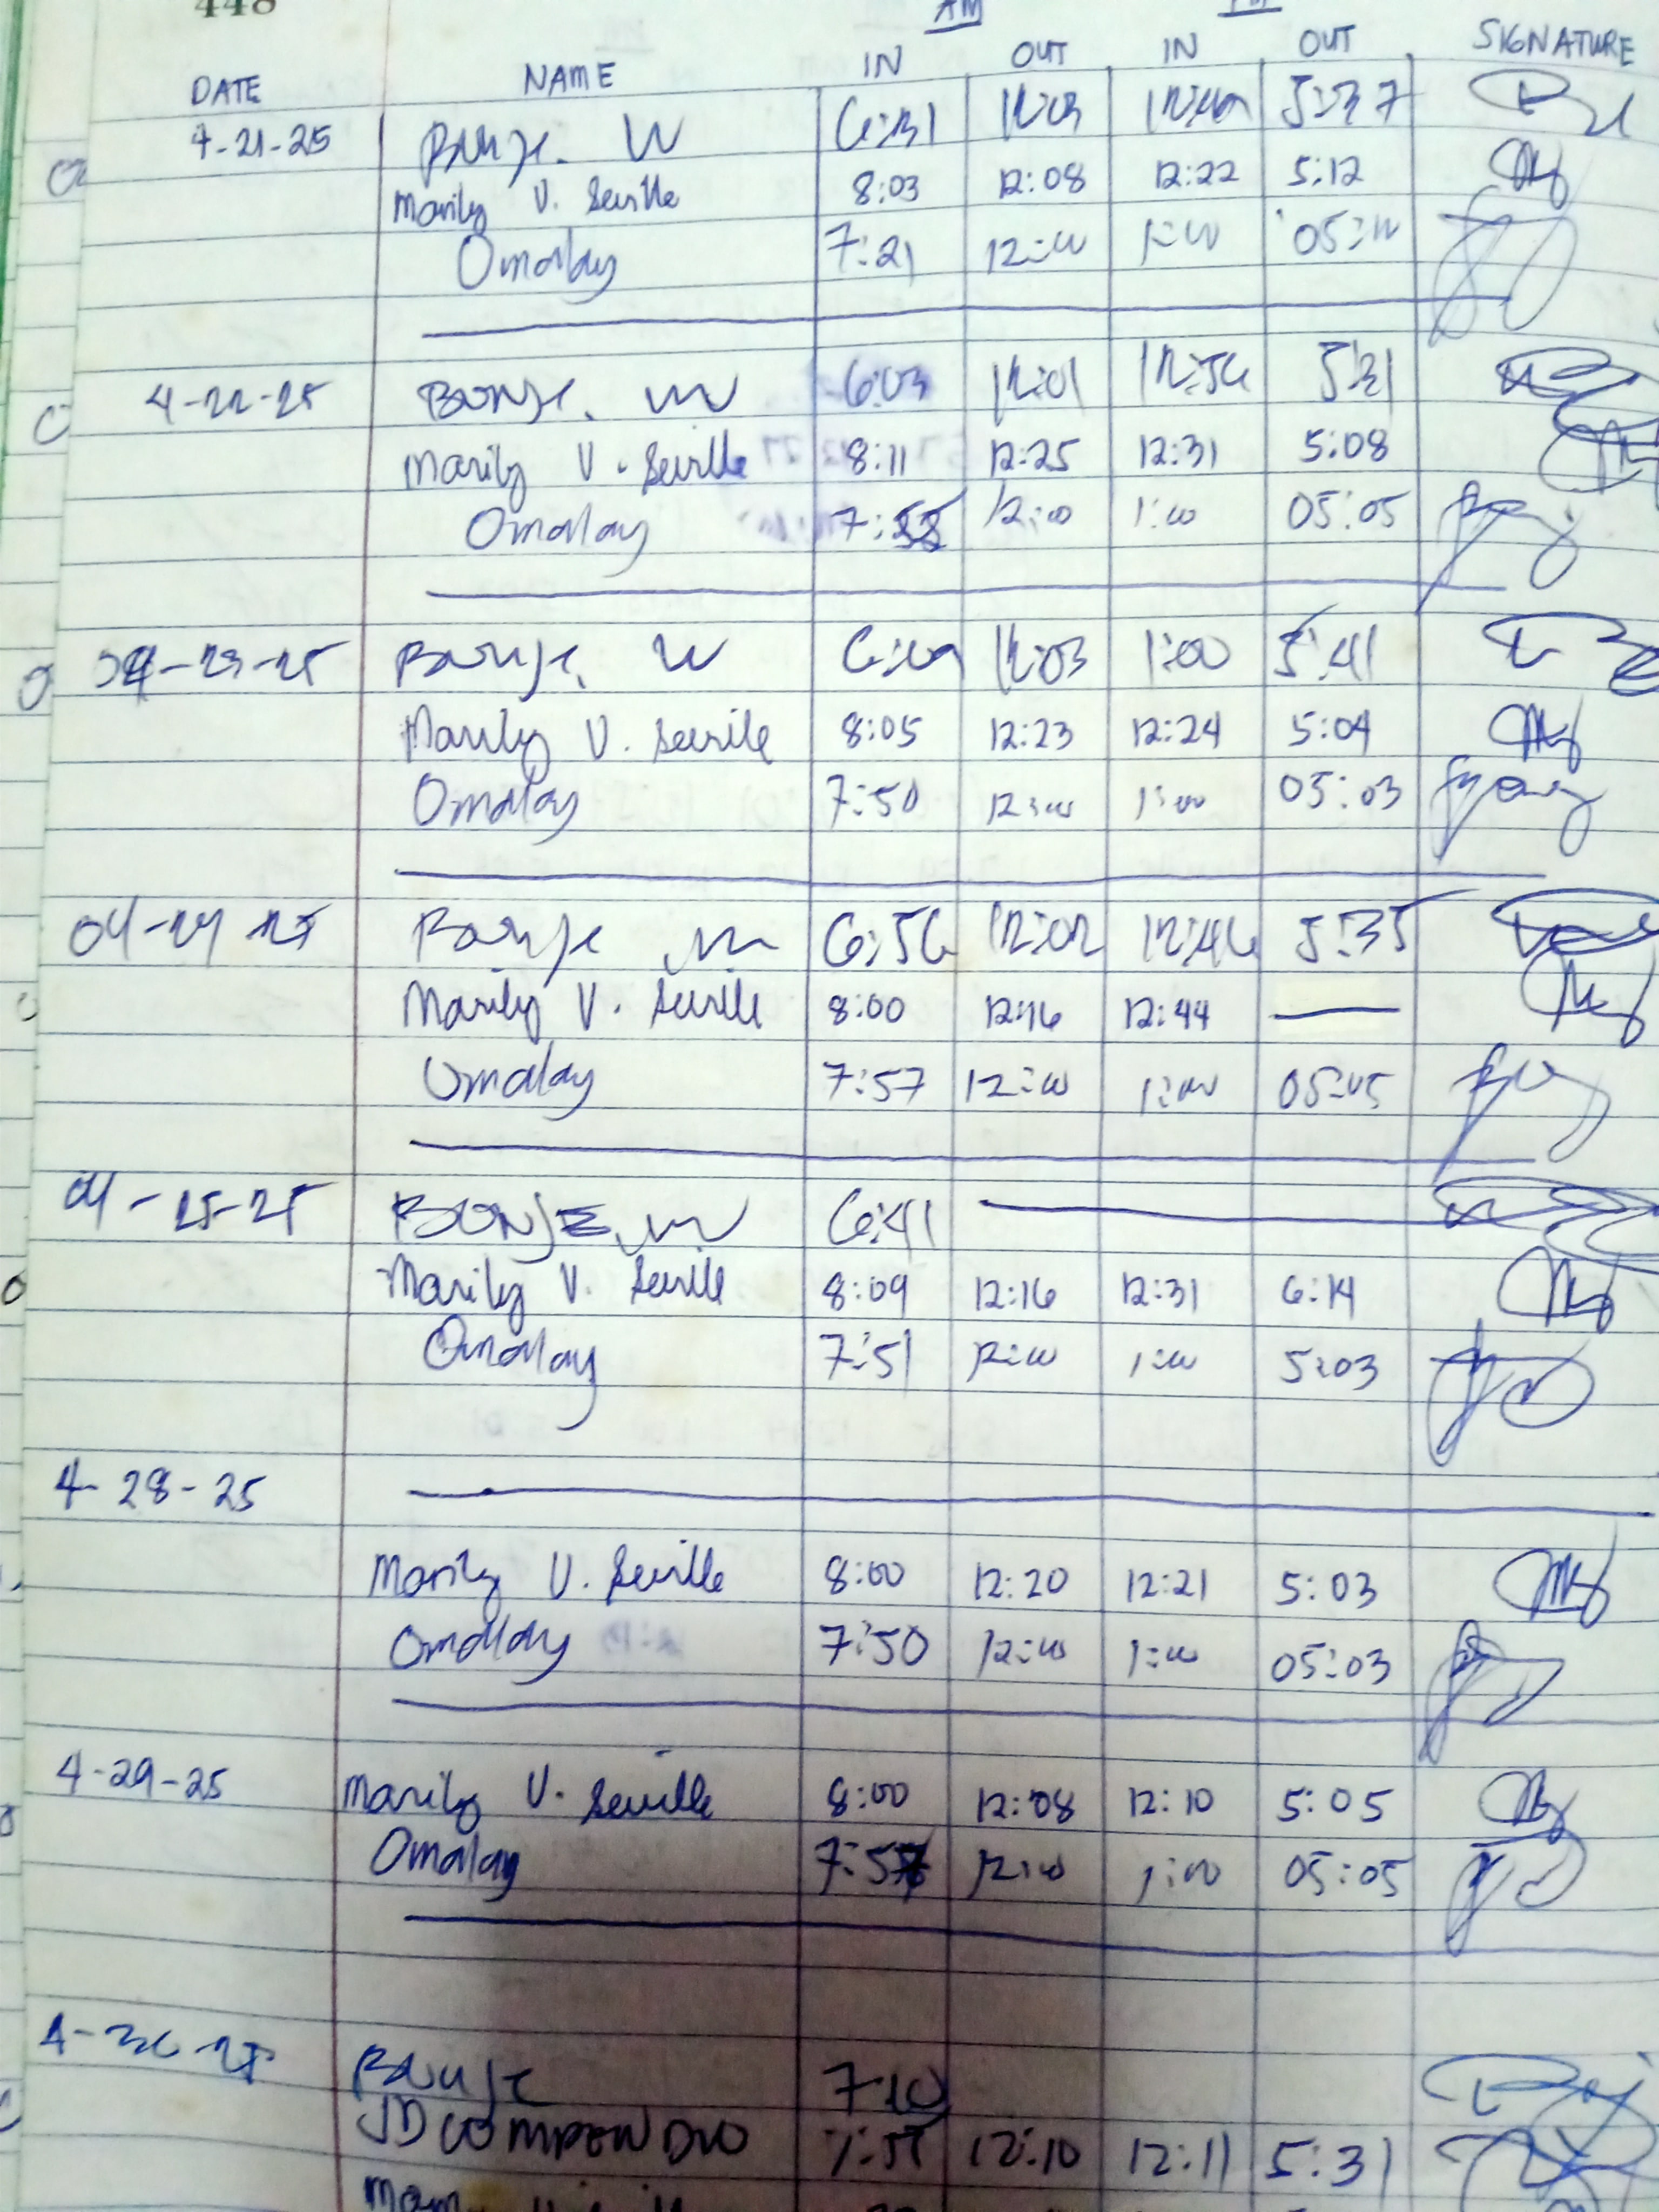 448
AM PM
DATE NAME IN OUT IN OUT SIGNATURE
4-21-25 W 6:31 12:03 5:37
Marily V. Seville 8:03 12:08 12:22 5:12
Omalay 7:21 12:00 1:00 05:10
4-22-25 6:03 12:01 12:56 5:31
Marily V. Seville 8:11 12:25 12:31 5:08
Omalay 12:00 1:00 05:05
04-23-25 W 12:03 1:00 5:41
Marily V. Seville 8:05 12:23 12:24 5:04
Omalay 7:50 12:00 1:00 05:03
04-24 25 6:56 12:02 12:46 5:35
Marily V. Seville 8:00 12:16 12:44 —
Omalay 7:57 12:00 1:00 05:05
04-25-25 6:41
Marily V. Seville 8:09 12:16 12:31 6:14
Omalay 7:51 12:00 1:00 5:03
4-28-25
Marily V. Seville 8:00 12:20 12:21 5:03
Omalay 7:50 12:00 1:00 05:03
4-29-25 Marily V. Seville 8:00 12:08 12:10 5:05
Omalay 12:00 1:00 05:05
4-30-25 7:10
JD COMPENDIO 12:10 12:11 5:31